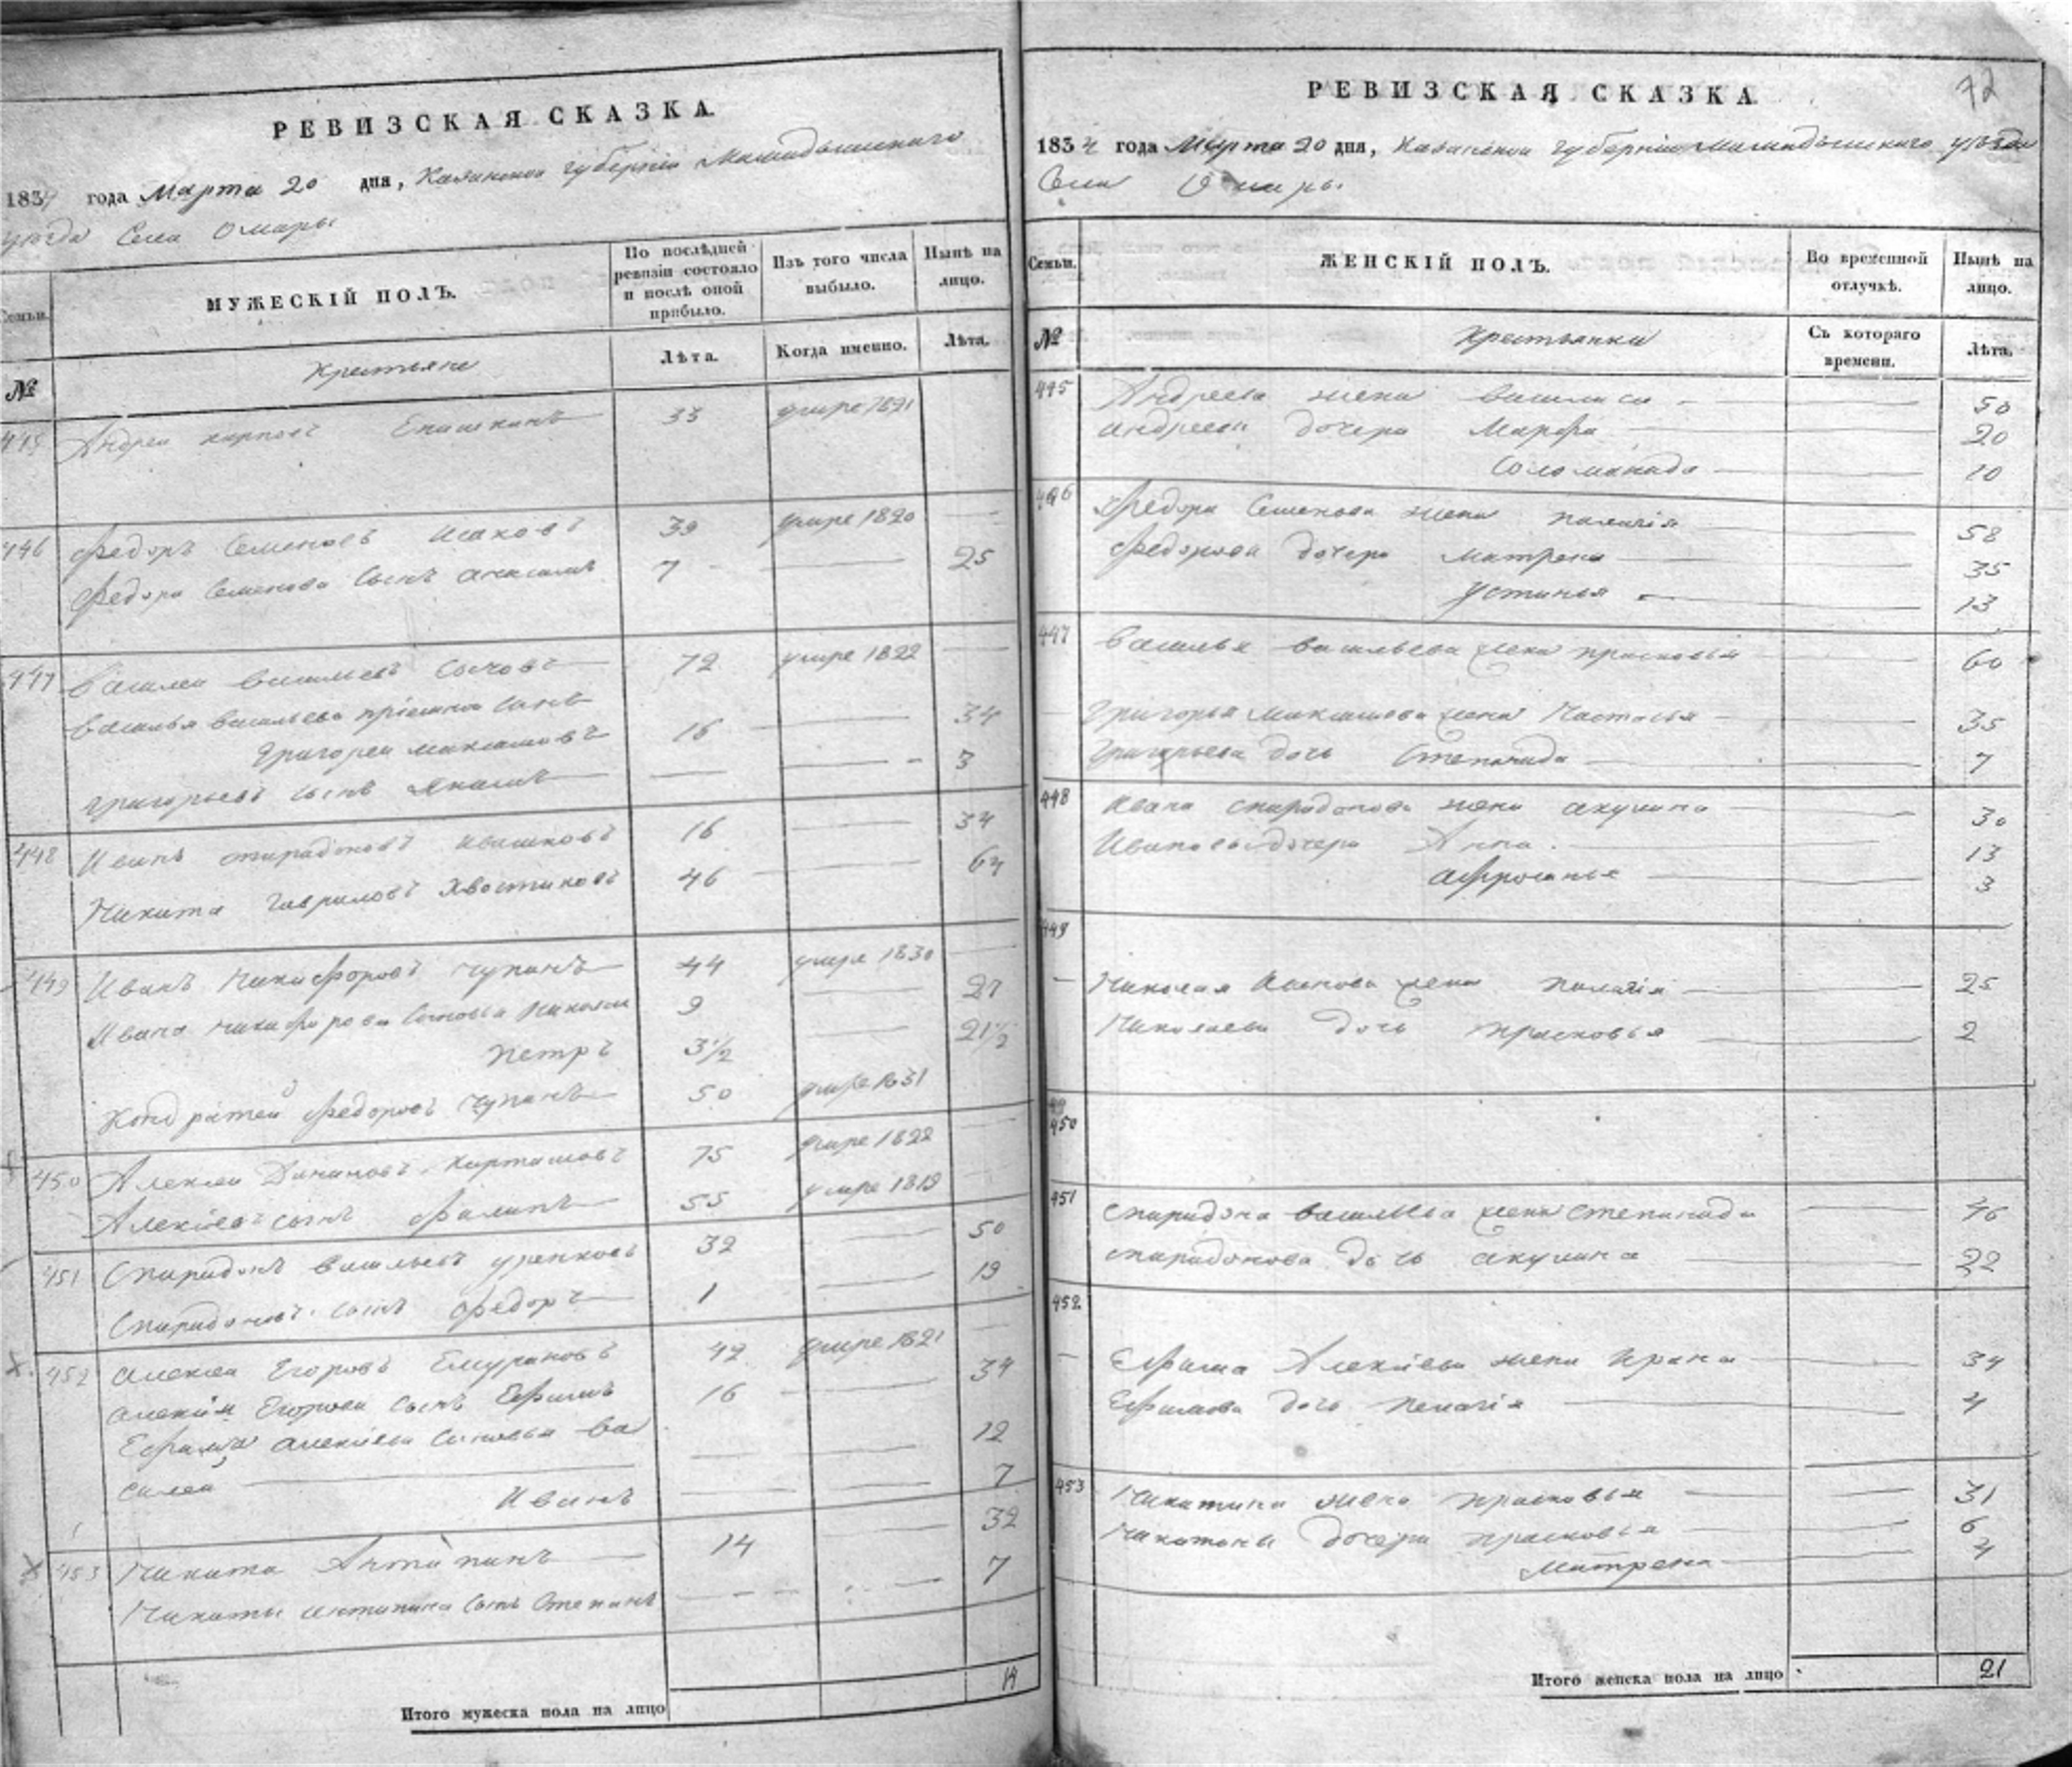 РЕВИЗСКАЯ СКАЗКА
1834 года Марта 20 дня, Казанской губернии Мамадышскаго
уезда Села Омары
Семьи.
МУЖЕСКІЙ ПОЛЪ.
По послѣдней ревизіи состояло и послѣ оной прибыло.
Изъ того числа выбыло.
Нынѣ на лицо.
№
Крестьяне
Лѣта.
Когда именно.
Лѣта.
445 Андреи карповъ 33 умре 1821
446 Федоръ Семеновъ Исаковъ 39 умре 1820
Федора Семенова сынъ 7 25
447 Василеи Васильевъ Сычовъ 72 умре 1822
Василья Васильева пріемной сынъ
Григореи Максимовъ 16 34
Григорьевъ сынъ Якимъ 3
448 Иванъ спиридоновъ Ивашковъ 16 34
Никита Гавриловъ Хвостиковъ 46 64
449 Иванъ Никифоровъ Чупинъ 44 умре 1830
Ивана Никифорова сыновья Николаи 9 27
Петръ 3 1/2 21 1/2
Кондратеи Федоровъ Чупинъ 50 умре 1831
450 Алексеи Карташовъ 75 умре 1822
Алексіевъ сынъ Филипъ 55 умре 1819
451 Спиридонъ Васильевъ 32 50
Спиридоновъ сынъ Федоръ 1 19
452 Алексеи Егоровъ Емурановъ 42 умре 1821
Алексія Егорова сынъ Ефимъ 16 34
Ефима Алексіева сыновья Ва
силеи 12
Иванъ 7
453 Никита Антипинъ 14 32
Никиты антипина сынъ Степанъ 7
Итого мужеска пола на лицо 14
72
РЕВИЗСКАЯ СКАЗКА
1834 года Марта 20 дня, Казанской губернии Мамадышскаго уезда
Села Омары
Семьи.
ЖЕНСКІЙ ПОЛЪ.
Во временной отлучкѣ.
Нынѣ на лицо.
№
Крестьянки
Съ котораго времени.
Лѣта.
445 Андреева жена Василиса 50
Андреевы дочери Марфа 20
Соломанида 10
446 Федора Семенова жена палагія 58
Федоровы дочери матрена 35
Устинья 13
447 Василья Васильева жена прасковья 60
Григорья Максимова жена Настасья 35
Григорьева дочь Степанида 7
448 Ивана спиридонова жена акулина 30
Ивановы дочери Анна 13
Афросинья 3
449
Николая Иванова жена палагія 25
Николаева дочь прасковья 2
450
451 Спиридона Васильева жена степанида 46
спиридонова дочь акулина 22
452
Ефима Алексіева жена Ирина 34
Ефимова дочь пелагія 4
453 Никитина жена прасковья 31
Никитины дочери прасковья 6
Матрена 4
Итого женска пола на лицо 21